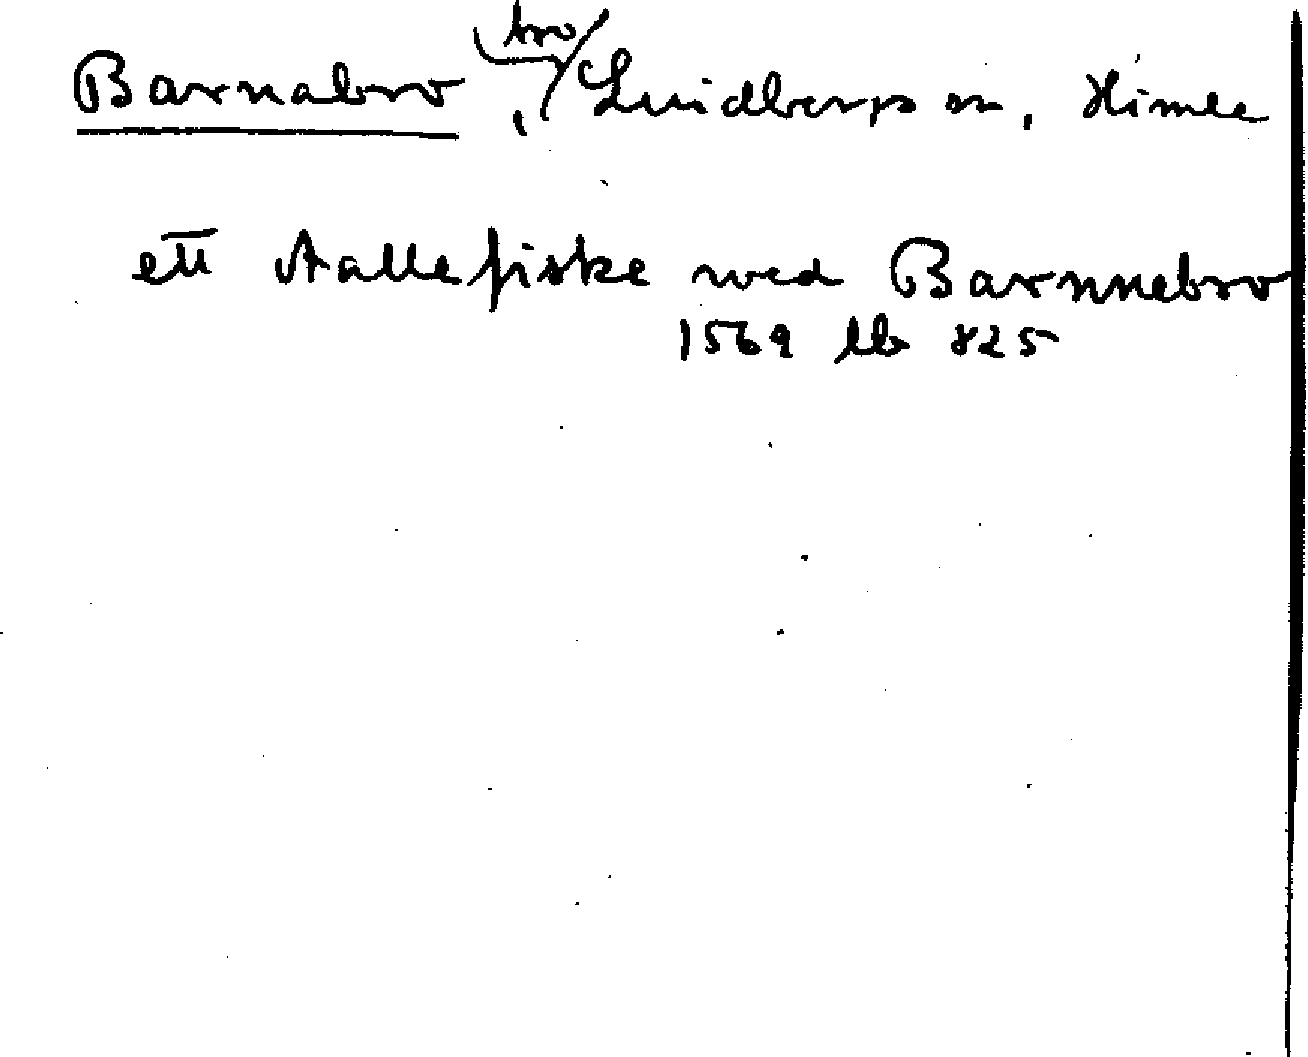 Barnabro, bro / Lindbergs sn, Himle
ett Aallefiske wed Barnnebro
1569 lb 825